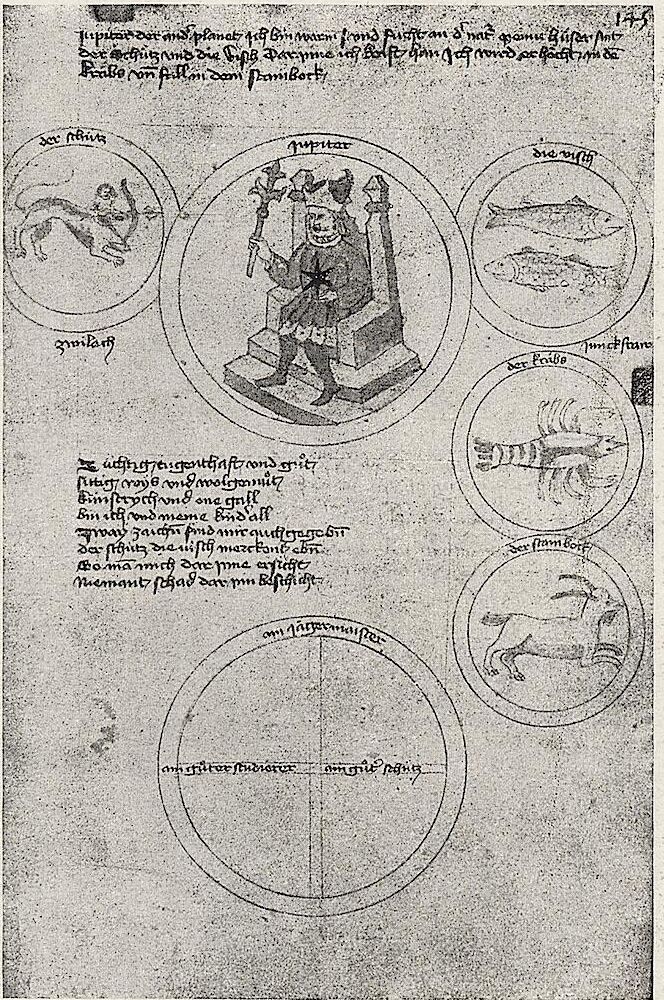 145
Jupiter der and planet Ich bin warm und fucht an d nat meine hüser sint
der Schütz und die Visch Dar inne ich krafft han Ich wird erhöcht in de
krebs un fall in dem stainbock
der schütz
Jupiter
die visch
zwilich
junckfraw
der krebs
Züchtig tugenthafft und gůt
sittig wys und wolgemůt
kunstrych und one gall
bin ich und meine kind all
Zway zaichn sind mir auch gegebn
der schütz die visch merckent ebn
So ma mich dar jnne ersicht
Niemant schad dar jnn beschicht
der stainbock
ain jägermaister
ain gůter studierer
ain gůt schütz